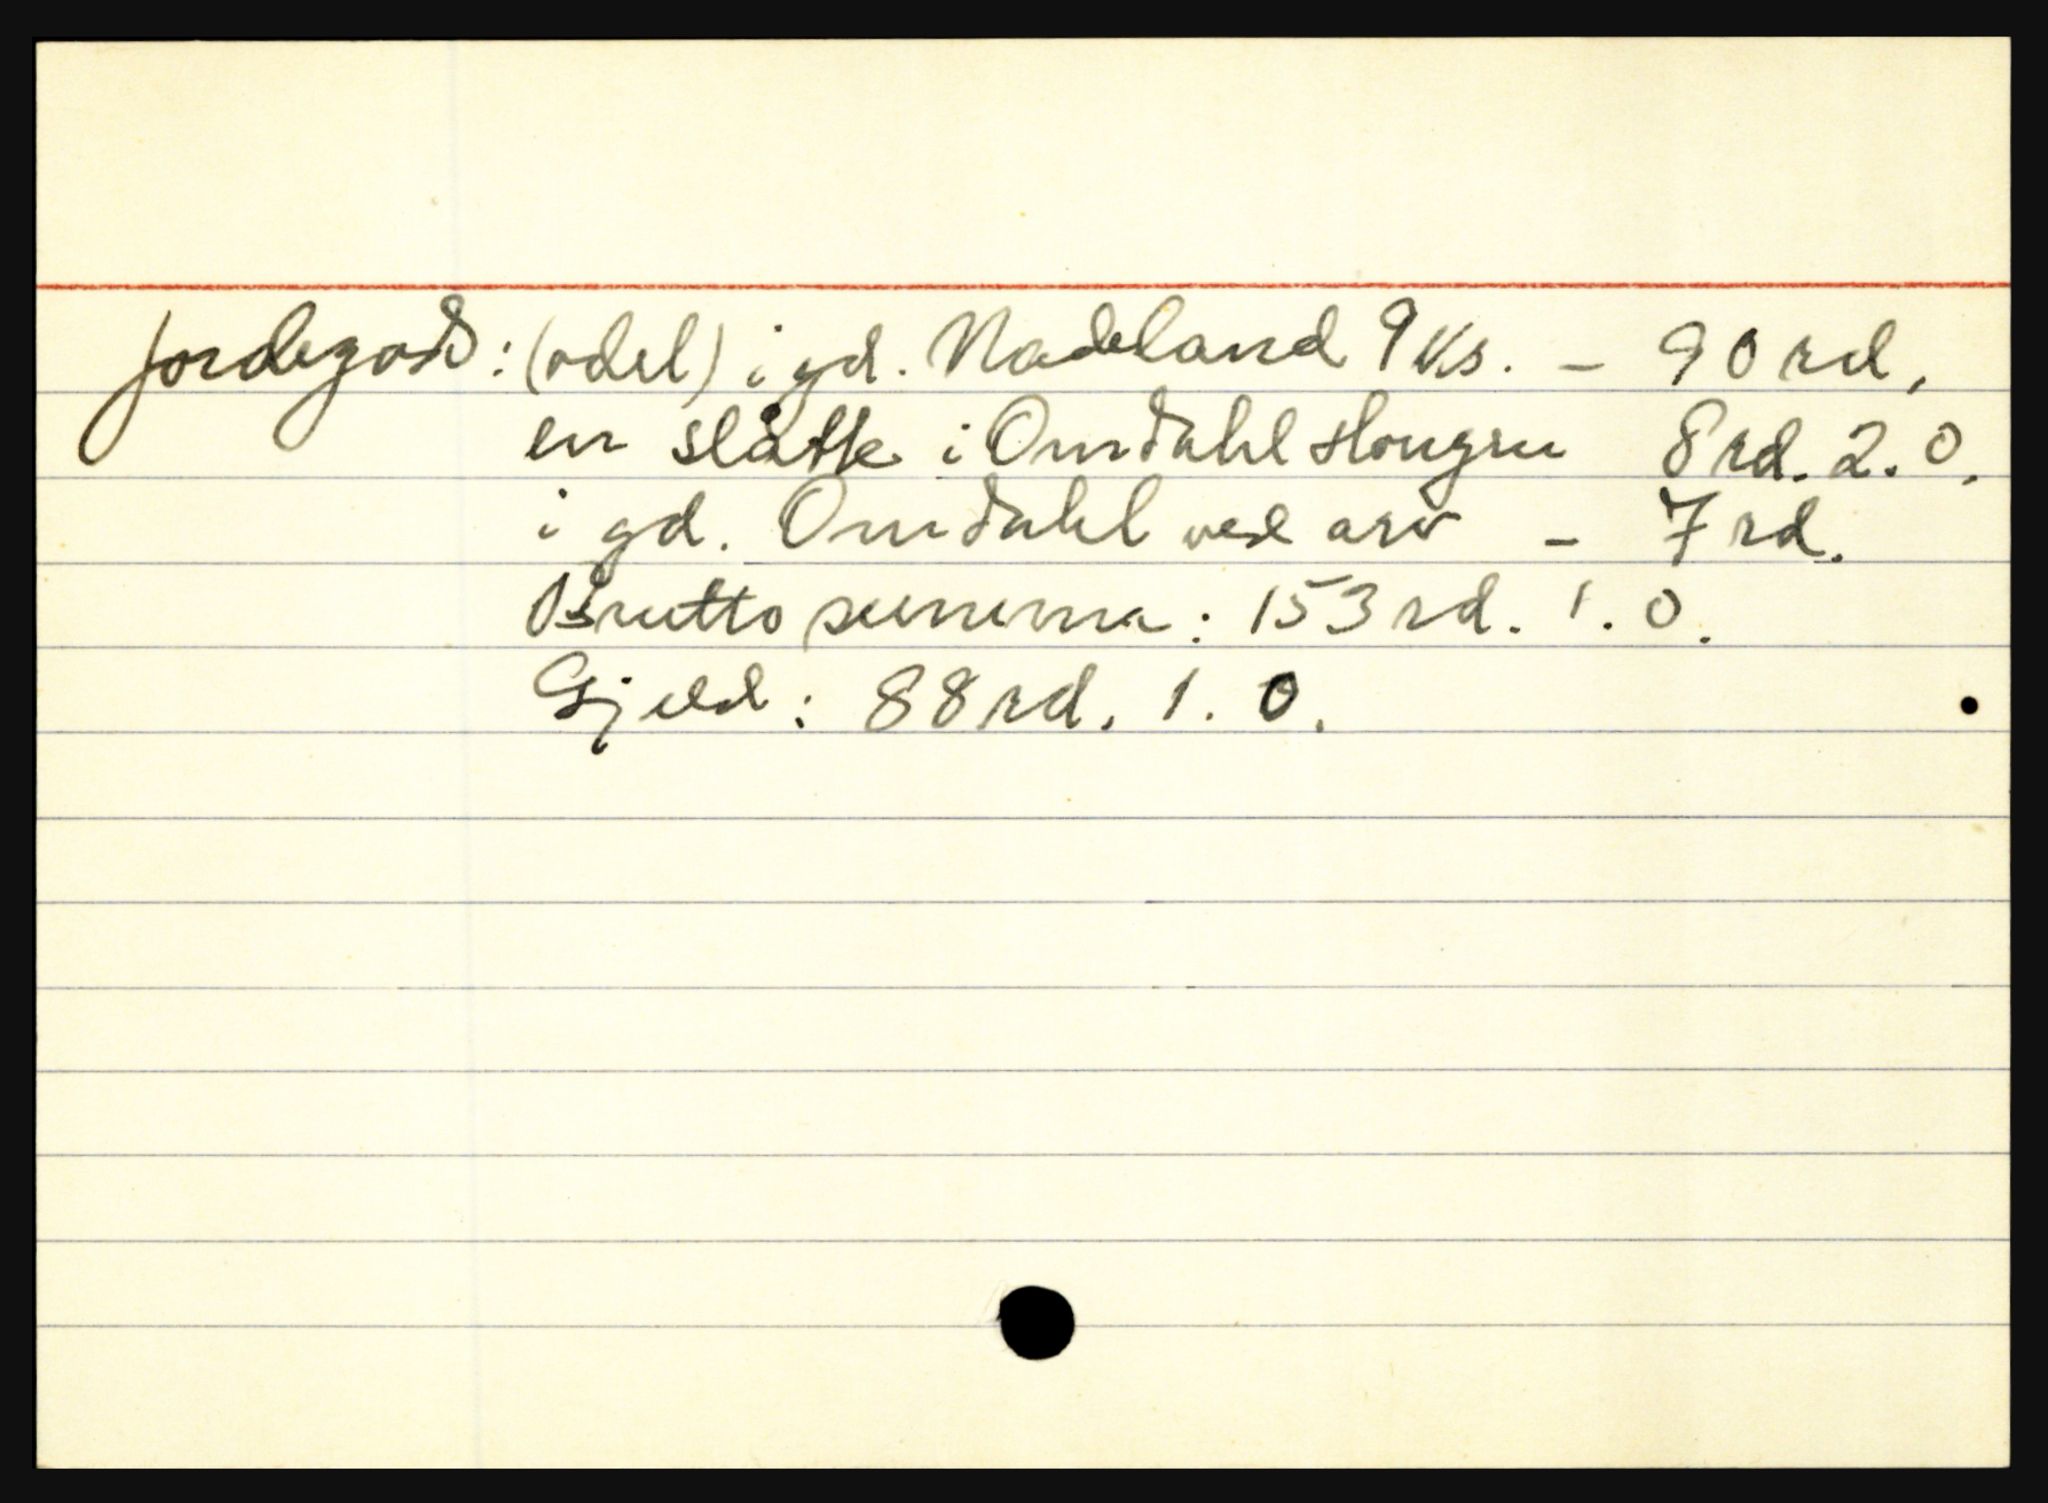 Jordegods: (odel) i gd. Nadeland 9 Ks. - 90 rd,
en slåtte i Omdahl 8 rd. 2. 0.
i gd. Omdahl ved arv - 7 rd.
Brutto summa: 153 rd. 1. 0.
Gjeld: 88 rd. 1. 0.